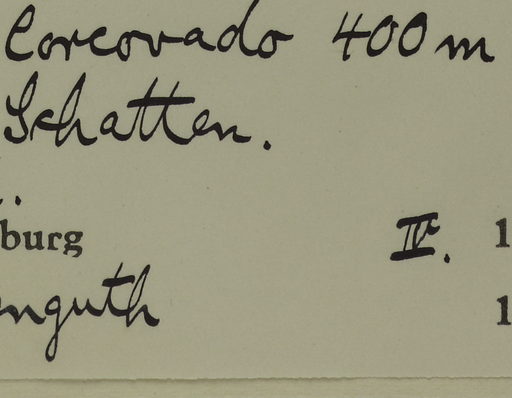 Corcovado 400m
Schatten.
burg IV. 1
nguth 1